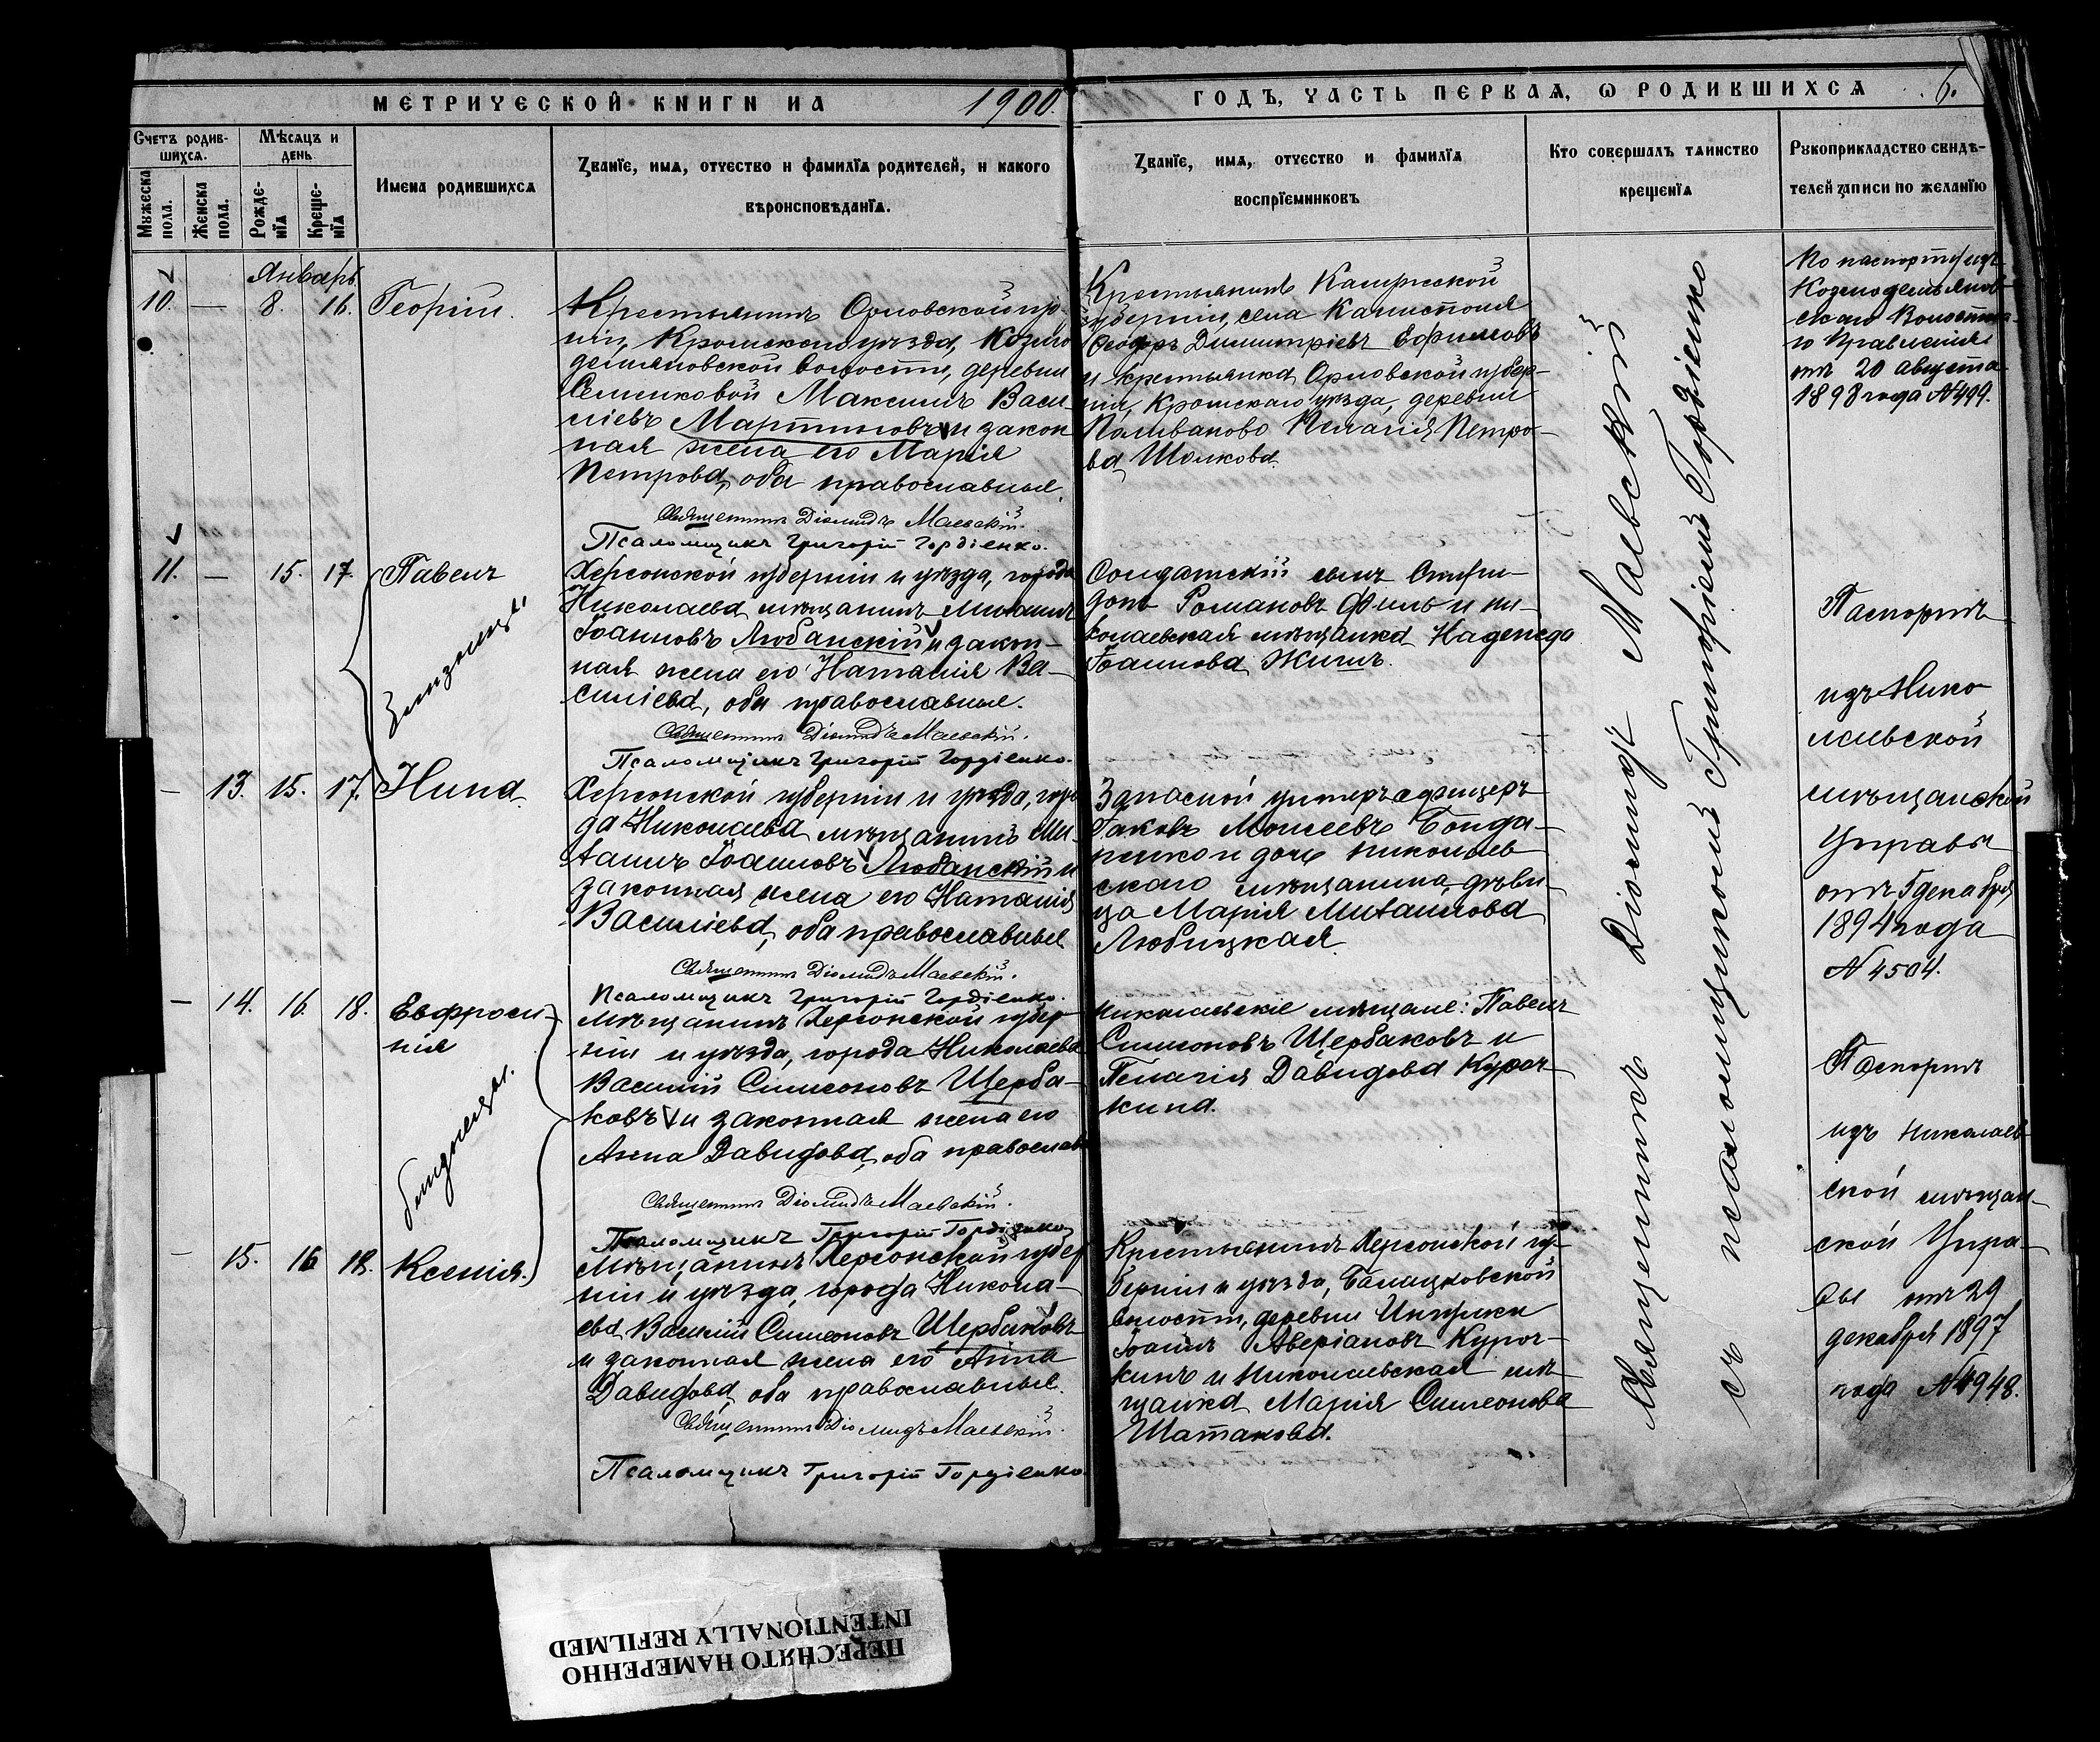 МЕТРИЧЕСКОЙ КНИГИ НА 1900.
ГОДЪ, ЧАСТЬ ПЕРВАЯ, Ѡ РОДИВШИХСЯ 6.
Счетъ родив-
шихся.
Мѣсяцъ и
день
Мужеска
пола.
Женска
пола.
Рожде-
нїя
Креще-
нїя
Имена родившихся
Званїе, имя, отчество и фамилїя родителей, и какого
вѣроисповѣданїя.
Званїе, имя, отчество и фамилїя
воспрїемниковъ
Кто совершалъ таинство
крещенїя
Рукоприкладство свидѣ-
телей записи по желанїю
Январь
10. — 8. 16. Георгій.
Крестьянинъ Орловской губ-
ніи, Кромскаго уѣзда, Козмо
демьяновской волости, деревни
Семенковой Максимъ Васи-
ліевъ Мартыновъ и закон
ная жена его Марія
Петрова, оба православные.
Священникъ Діомидъ Маевскій.
Псаломщикъ Григорій Гордіенко.
Крестьянинъ Калужской
губерніи, села Капистоля
Ѳеодоръ Димитріевъ Ефимовъ
и крестьянка Орловской губер-
ніи, Кромскаго уѣзда, деревни
Поливаново Пелагія Петро-
ва Шолкова.
По паспорту изъ
Козмодемьянов-
скаго Волостна-
го Правленія
отъ 20 августа
1898 года № 499.
11. — 15. 17. Павелъ
Близнецы.
Херсонской губерніи и уѣзда, города
Николаева мѣщанинъ Михаилъ
Іоанновъ Любанскій и закон-
ная жена его Наталія Ва-
силіева, оба православные.
Священникъ Діомидъ Маевскій.
Псаломщикъ Григорій Гордіенко.
Солдатскій сынъ Спири-
донъ Романовъ Филь и ни-
колаевская мѣщанка Надежда
Іоаннова Жигиъ.
Паспортъ
изъ Нико
лаевской
мѣщанской
Управы
отъ 5 декабря
1894 года
№ 4504.
— 13. 15. 17. Нина.
Херсонской губерніи и уѣзда, горо
да Николаева мѣщанинъ Ми-
хаилъ Іоанновъ Любанскій и
законная жена его Наталія
Василіева, оба православные
Священникъ Діомидъ Маевскій.
Псаломщикъ Григорій Гордіенко.
Запасной унтеръ-офицеръ
Іаковъ Моисеевъ Бонда-
ренко и дочь николаев
скаго мѣщанина, дѣви-
ца Марія Михаилова
Любицкая.
— 14. 16. 18. Евфроси-
нія
близнецы.
Мѣщанинъ Херсонской губер
ніи и уѣзда, города Николаева
Василій Симеоновъ Щерба-
ковъ и законная жена его
Анна Давидова, оба православ
Священникъ Діомидъ Маевскій.
Псаломщикъ Григорій Гордіенко
Николаевскіе мѣщане: Павелъ
Симеоновъ Щербаковъ и
Пелагія Давидова Куроч-
кина.
Паспортъ
изъ николаев
ской мѣщан-
ской Упра-
вы отъ 29
декабря 1897
года № 4948.
— 15. 16 18. Ксенія.
Мѣщанинъ Херсонской губер
ніи и уѣзда, города Никола-
ева Василій Симеоновъ Щербаковъ
и законная жена его Анна
Давидова, оба православные.
Священникъ Діомидъ Маевскій.
Псаломщикъ Григорій Гордіенко.
Крестьянинъ Херсонской гу-
берніи и уѣзда, Балацковской
волости, деревни Ингулки
Іоаннъ Аверіановъ Куроч-
кинъ и николаевская мѣ-
щанка Марія Симеонова
Шатакова.
Священникъ Діомидъ Маевскій
съ псаломщикомъ Григоріемъ Гордіенко
ПЕРЕСНЯТО НАМЕРЕННО
INTENTIONALLY REFILMED